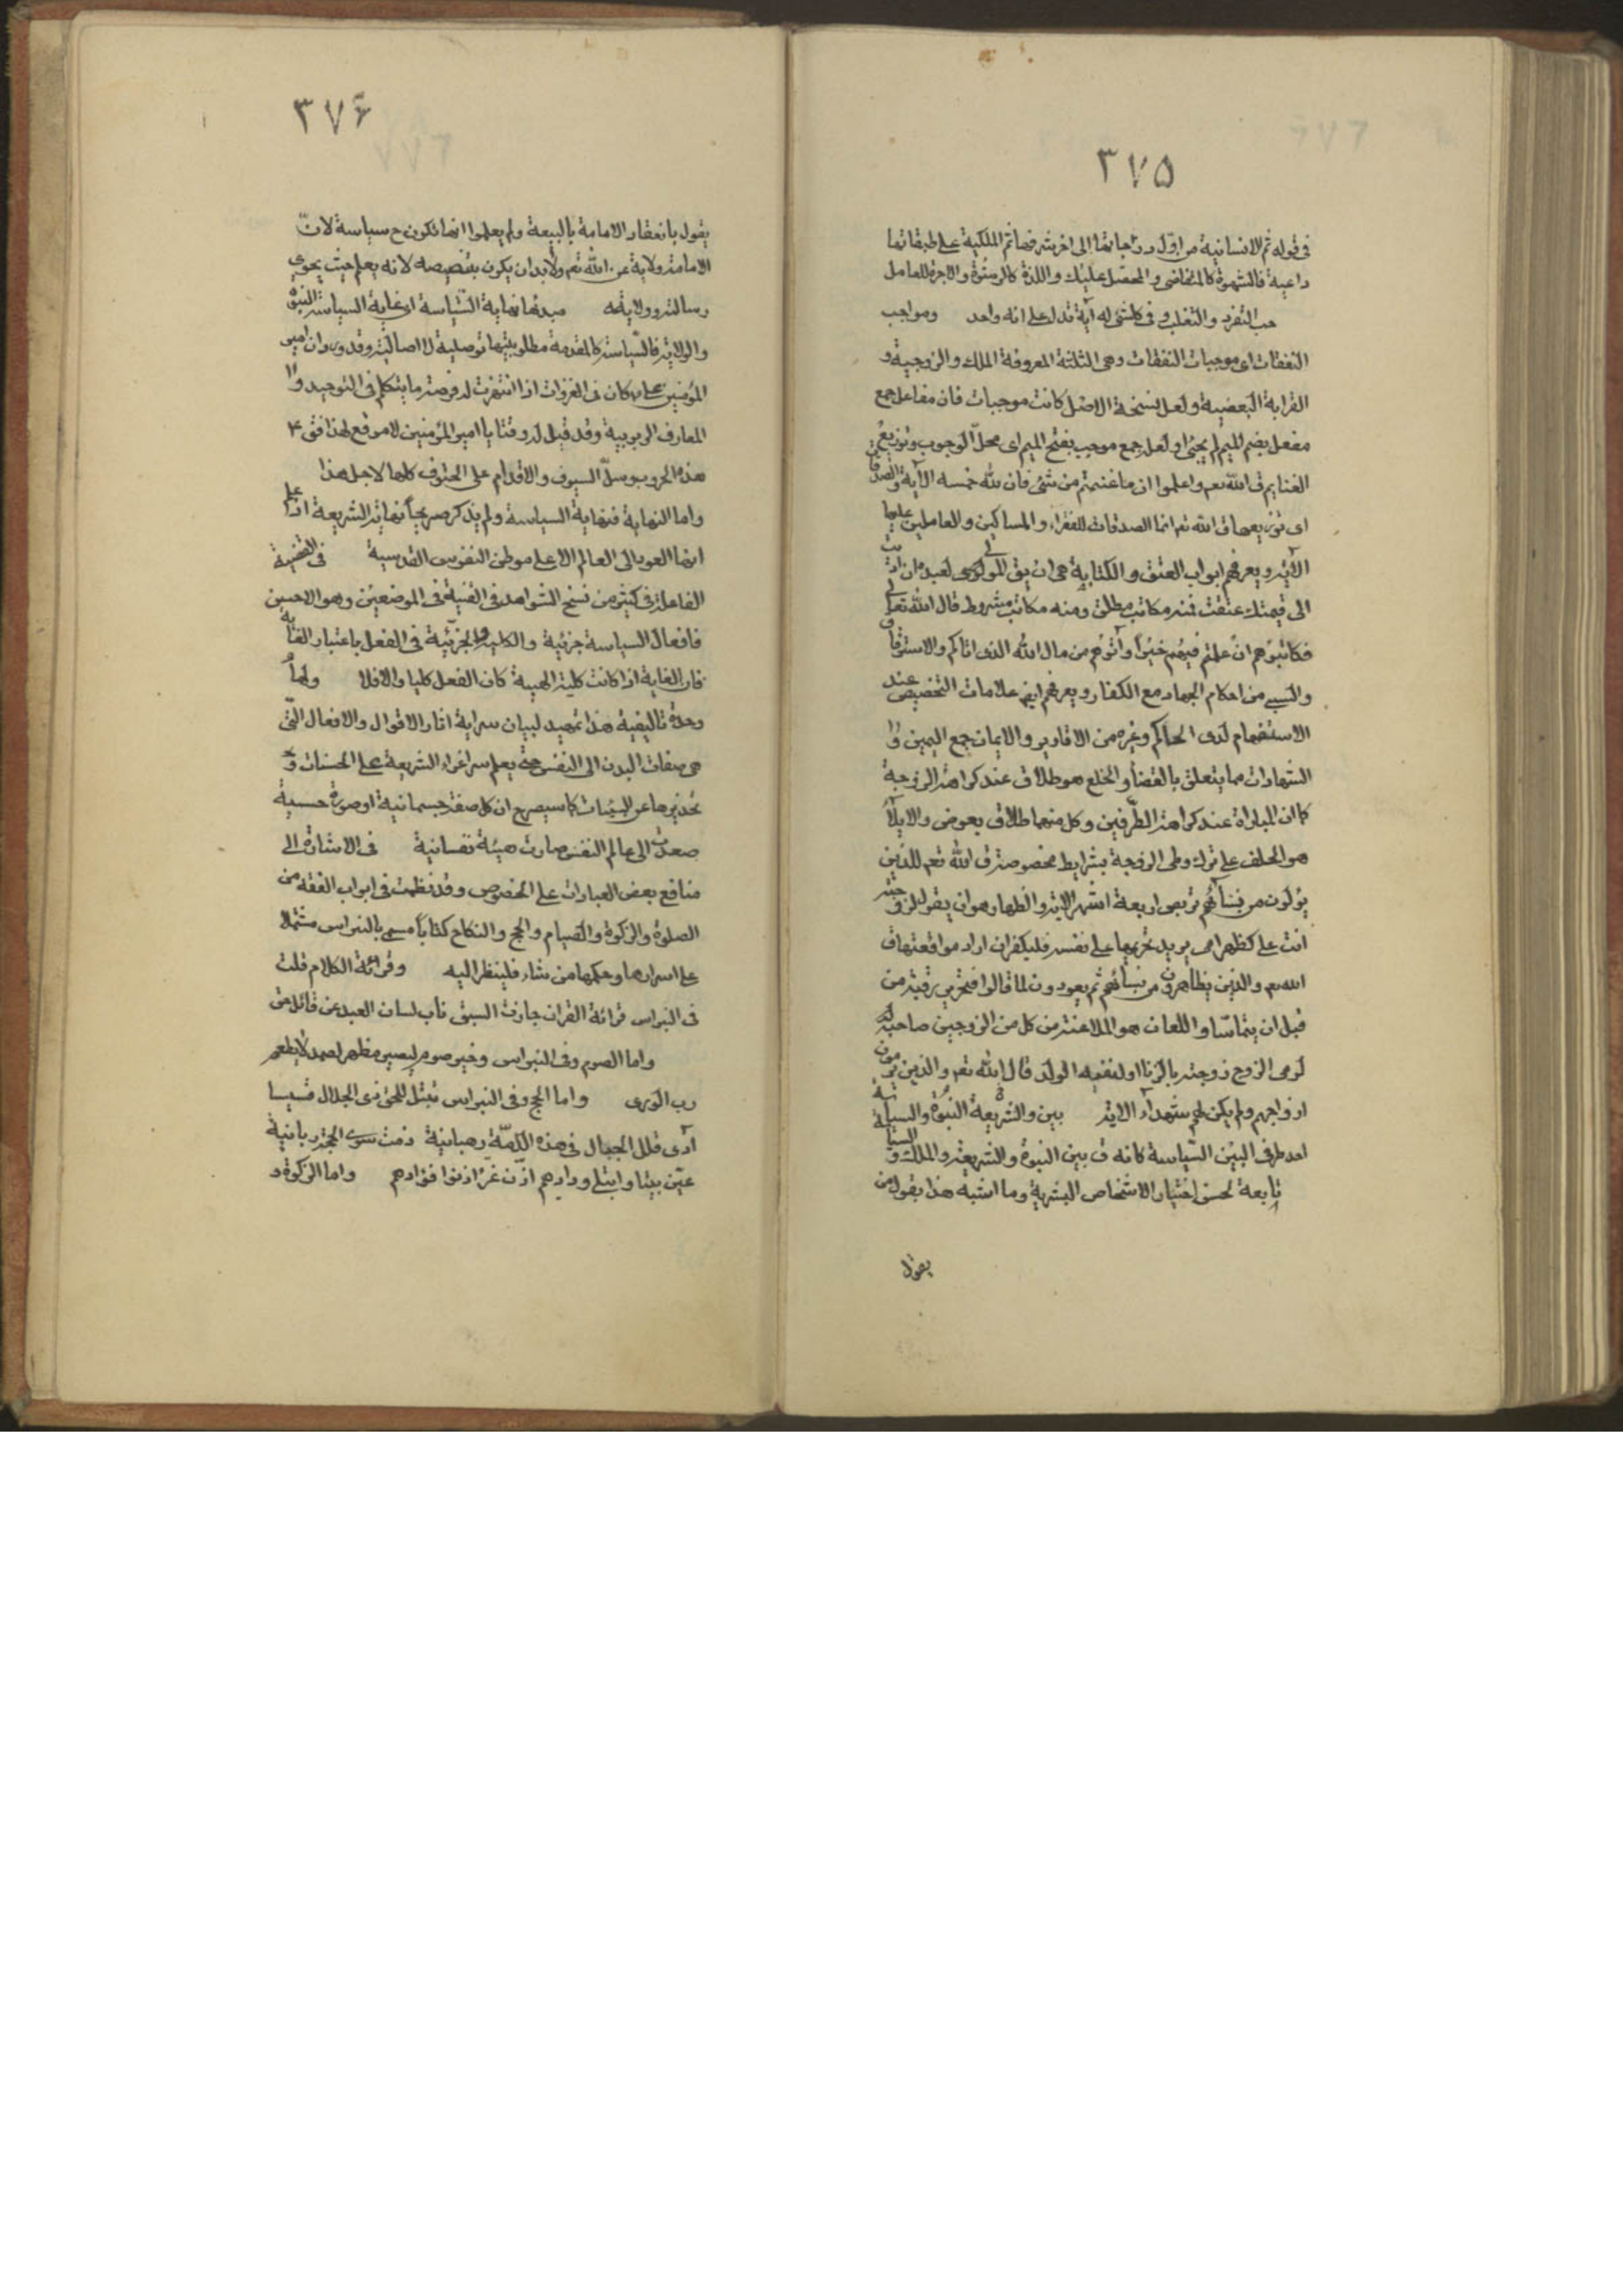 ٣٧۵
فى قوله ثم الانسانية من اول درجاتها الى اخر شرفها ثم الملكية على طبقاتها
داعية فالشهوة كالمتقاضى والمحصل عليك واللذة كالرشوة والاجرة للعامل
حب التفرد والتغلب وفى كل شئ له آية تدل على انه واحد ومواجب
النفقات اى موجبات النفقات وهى الثلثة المعروفة الملك والزوجية و
القرابة البعضية ولعل نسخة الاصل كانت موجبات فان مفاعل جمع
مفعل بضم الميم لم يجئ او لعل جمع موجب بفتح الميم اى محل الوجوب وتوزيع
الغنايم ق الله تعم واعلموا ان ما غنمتم من شئ فان لله خمسه الآية والصدقات
اى توزيعها ق الله تعم انما الصدقات للفقراء والمساكين والعاملين عليها
الآية ويعرفهم ابواب العتق والكتابة هى ان يق المولى لعبده ان اديت
الى قيمتك عتقت فمنه مكاتب مطلق ومنه مكاتب مشروط قال الله تعالى
فكاتبوهم ان علمتم فيهم خيرا وآتوهم من مال الله الذى اتاكم والاسترقاق
والسبى من احكام الجهاد مع الكفار ويعرفهم ايضا علامات التخصيص عند
الاستفهام لدى الحاكم وغيره من الاقارير والايمان جمع اليمين وا
الشهادات مما يتعلق بالقضأ والخلع هو طلاق عند كراهة الزوجة
كما ان المباراة عند كراهة الطرفين وكل منهما طلاق بعوض والايلأ
هو الحلف على ترك وطى الزوجة بشرايط مخصوصة ق الله تعم للذين
يؤلون من نسائهم تربص اربعة اشهر الاية والظهار هو ان يقول لزوجته
انت على كظهر امى يريد تحريمها على نفسه فليكفر ان اراد مواقعتها ق
الله تعم والذين يظاهرون من نسائهم ثم يعودون لما قالوا فتحرير رقبة من
قبل ان يتماسا واللعان هو الملاعنة من كل من الزوجين صاحبه
لرمى الزوج زوجته بالزنا او لنفيه الولد قال الله تعم والذين يرمون
ازواجهم ولم يكن لهم شهدآء الاية بين والشريعة النبوة والسياسة
احد طرفى البين السياسة كانه ق بين النبوة والشريعة والملك والسياسة
تابعة لحسن اختيار الاشخاص البشرية وما اشبه هذا بقول من
يقول
٣٧۶
يقول بانعقاد الامامة بالبيعة ولم يعلموا انها تكون ح سياسة لان
الامامة ولاية عن الله تعم ولا بد ان يكون بتنصيصه لانه يعلم حيث يحوى
رسالته وولايته مبدئها نهاية السياسة اى غاية السياسة النبوة
والولاية فالسياسة كالمقدمة مطلوبيتها توصلية لا اصالية وقد ورد ان امير
المؤمنين كان فى الغزوات اذا انتهزت له فرصة ما يتكلم فى التوحيد وا
المعارف الربوبية وقد قيل له وقتا يا امير المؤمنين لا موقع لهذا فق ع
هذه الحروب وسل السيوف والاقدام على الحتوف كلها لاجل هذا
واما النهاية فنهاية السياسة ولم يذكر صريحا نهاية الشريعة اذ علم
انها العود الى العالم الاعلى موطن النفوس القدسية فى القضية
الفاعلة فى كثير من نسخ الشواهد فى القنية فى الموضعين وهو الاحسن
فافعال السياسة جزئية والكلية والجزئية فى الفعل باعتبار الغاية
فان الغاية اذا كانت كلية الهية كان الفعل كليا والا فلا ولها
وحدة تاليفية هذا تمهيد لبيان سراية اثار الاقوال والافعال التى
هى صفات البدن الى النفس حتى يعلم سر اغراء الشريعة على الحسنات و
تحذيرها عن السيئات كما سيصرح ان كل صفة جسمانية او صورة حسية
صعدت الى عالم النفس صارت هيئة نفسانية فى الاشارة الى
منافع بعض العبادات على الخصوص وقد نظمت فى ابواب الفقه من
الصلوة والزكوة والصيام والحج والنكاح كتابا مسمى بالنبراس مشتملا
على اسرارها وحكمها من شاء فلينظر اليه وقرائة الكلام قلت
فى النبراس قرائة القران حازت السبق ناب لسان العبد عن قائل حق
واما الصوم وفى النبراس وخير صوم ليصير مظهرا صمد لا يطعم
رب الورى واما الحج وفى النبراس تبتل للحق ذى الجلال قسيسا
آوى قلل الجبال فى هذه الامة رهبانية ذمت سوى الحجة ربانية
عين بيتا وابتلى ودادهم اذن غر اذنوا فؤادهم واما الزكوة و